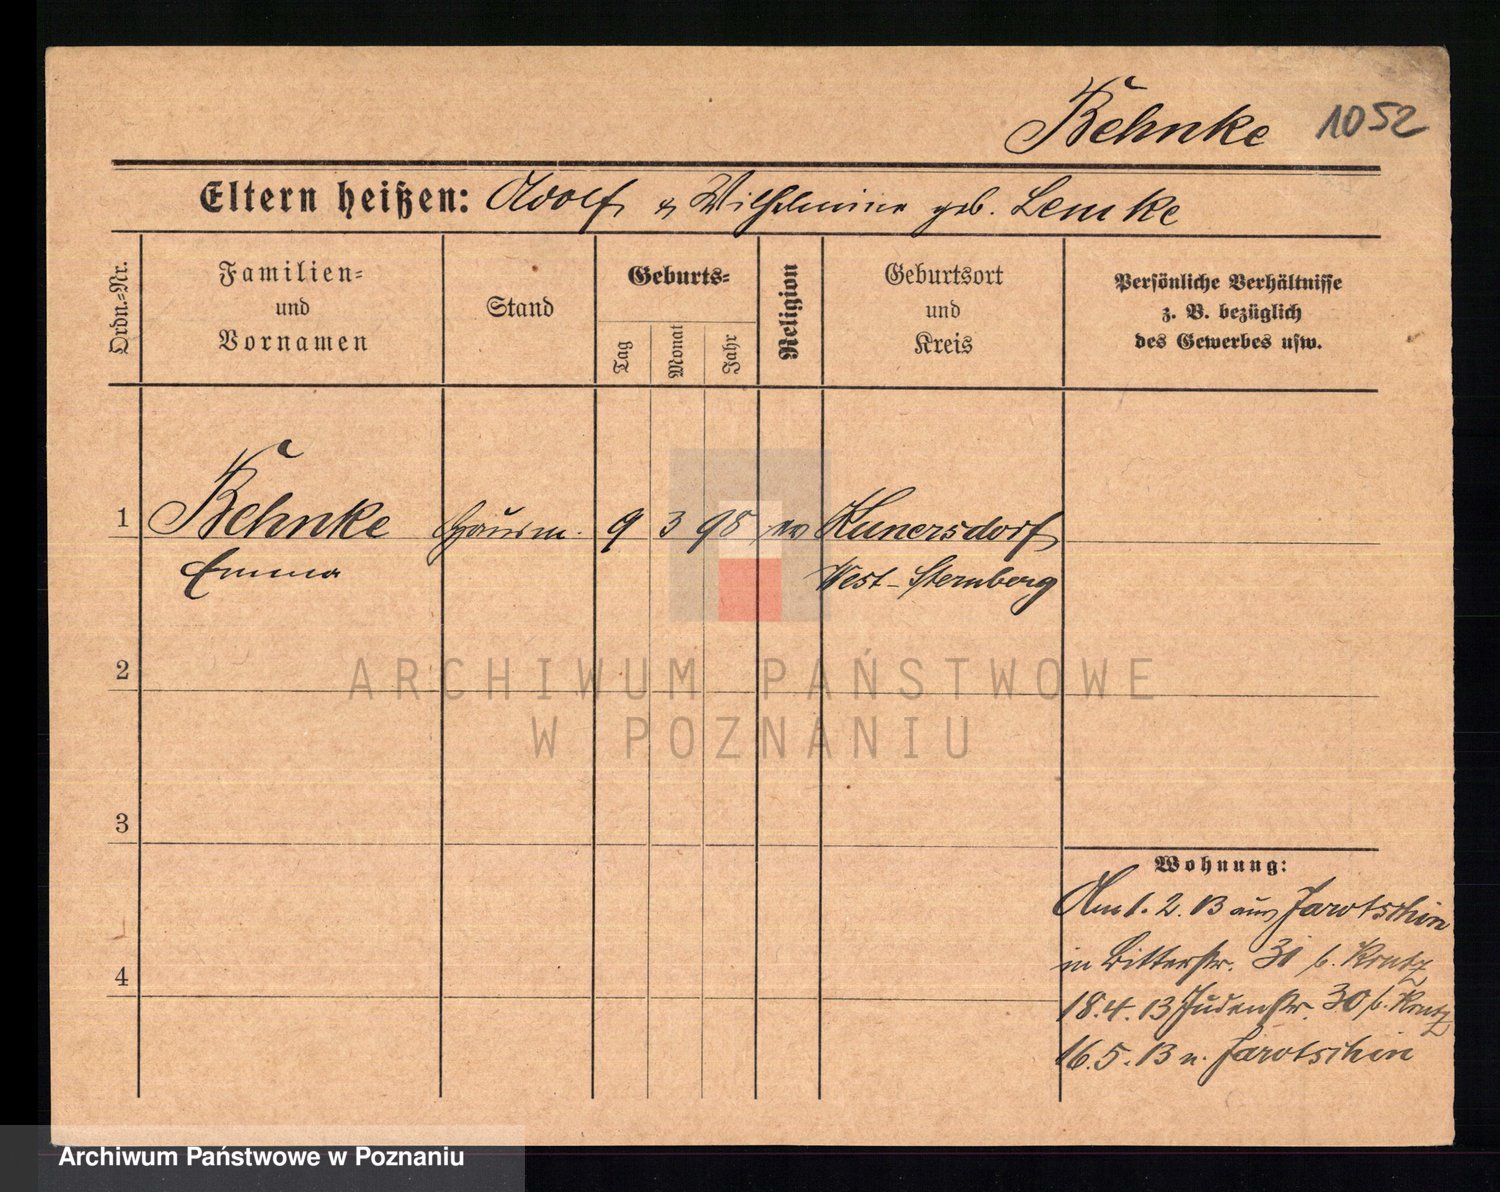 Behnke 1052
Eltern heißen: Adolf & Wilhelmine geb. Lemke
Ordn.=Nr.
Familien=
und
Vornamen
Stand
Geburts=
Tag
Monat
Jahr
Religion
Geburtsort
und
Kreis
Persönliche Verhältnisse
z. B. bezüglich
des Gewerbes usw.
1 Behnke 9 3 98 ev Kunersdorf
Emma West-Sternberg
2
3
4
Wohnung:
Am 1. 2. 13 aus Jarotschin
in Ritterstr. 30 b. Krutz
18.4.13 Judenstr. 30 b. Krutz
16.5.13 n. Jarotschin
ARCHIWUM PAŃSTWOWE
W POZNANIU
Archiwum Państwowe w Poznaniu